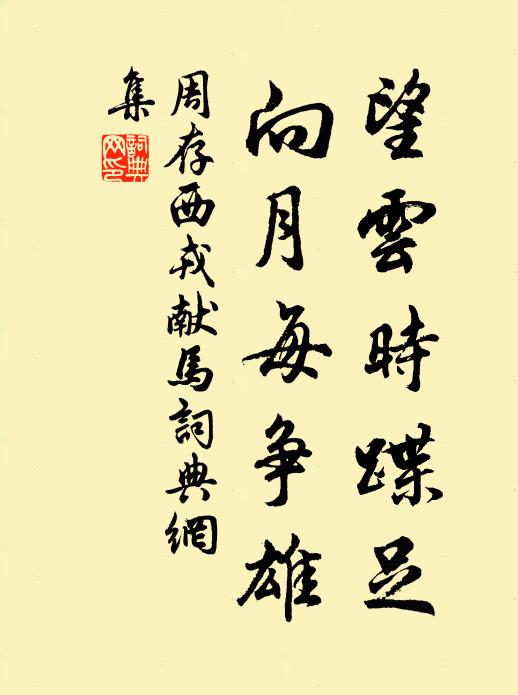 望雲時蹀足
向月每争雄
周存西戎献馬詞典網
集
詞典
网印